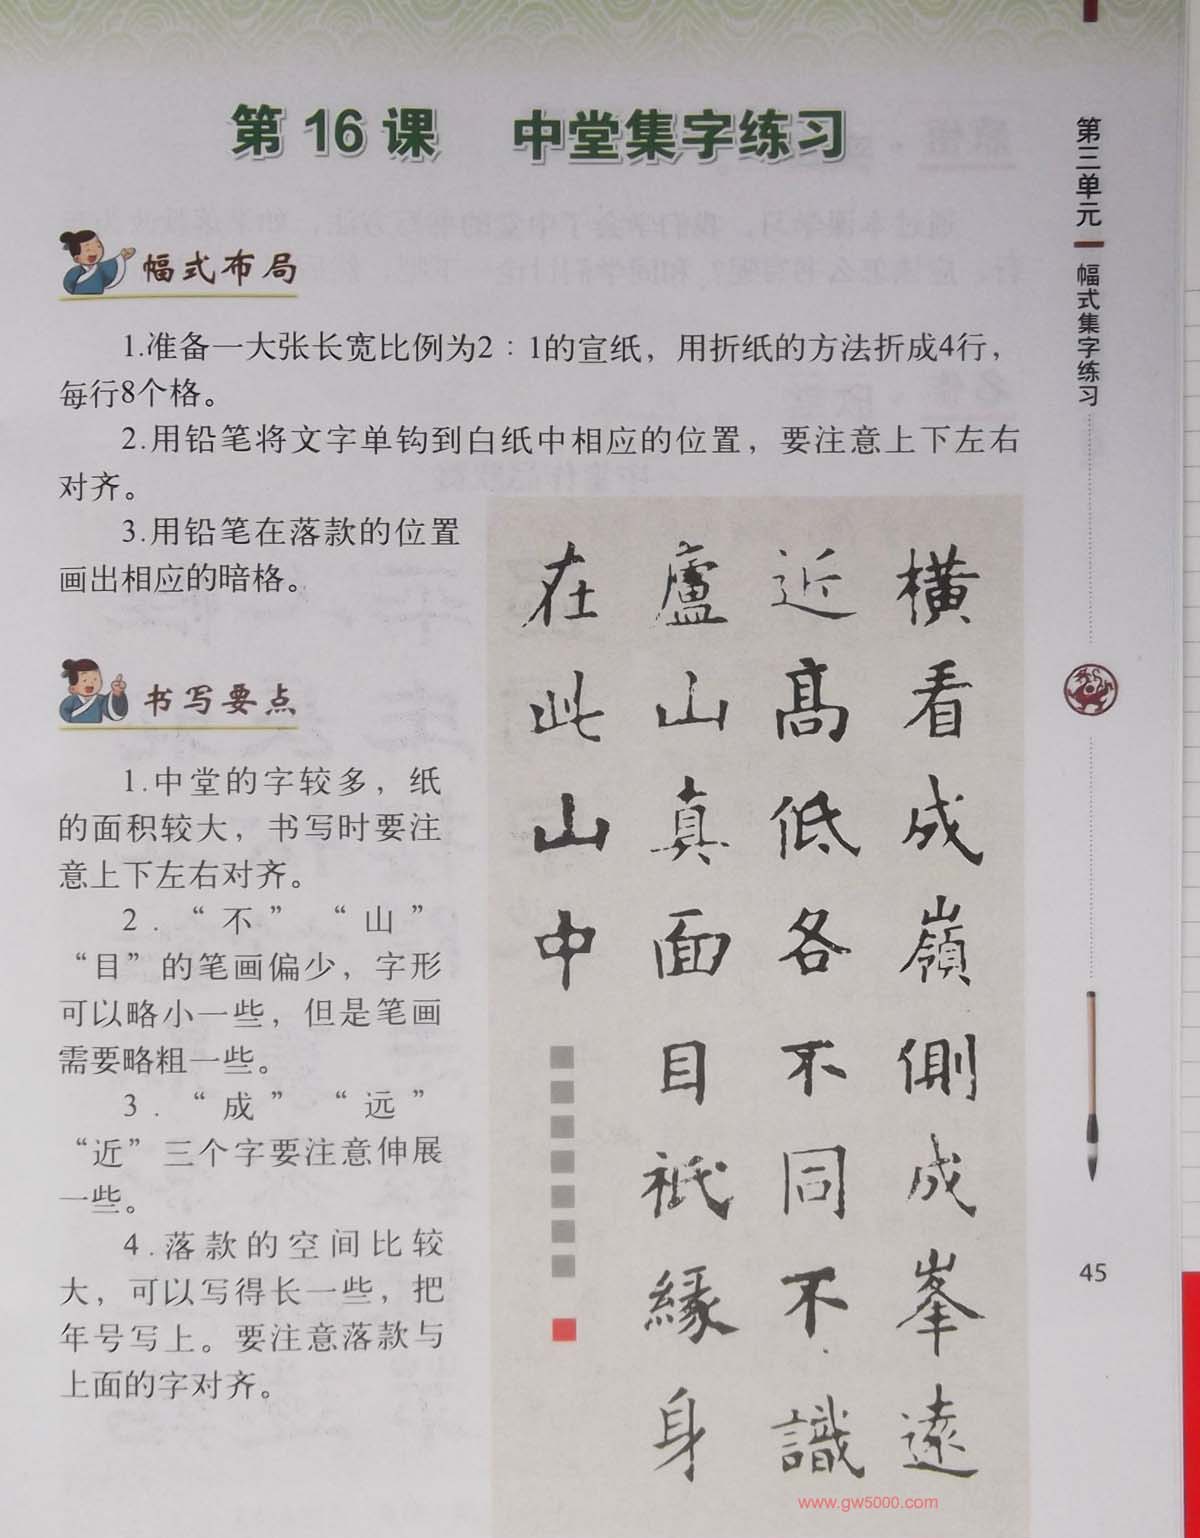 第16课 中堂集字练习
幅式布局
1.准备一大张长宽比例为2：1的宣纸，用折纸的方法折成4行，
每行8个格。
2.用铅笔将文字单钩到白纸中相应的位置，要注意上下左右
对齐。
3.用铅笔在落款的位置
画出相应的暗格。
书写要点
1.中堂的字较多，纸
的面积较大，书写时要注
意上下左右对齐。
2.“不”“山”
“目”的笔画偏少，字形
可以略小一些，但是笔画
需要略粗一些。
3.“成”“远”
“近”三个字要注意伸展
一些。
4.落款的空间比较
大，可以写得长一些，把
年号写上。要注意落款与
上面的字对齐。
橫看成嶺側成峯遠
近髙低各不同不識
廬山真面目衹緣身
在此山中
www.gw5000.com
第三单元
幅式集字练习
45